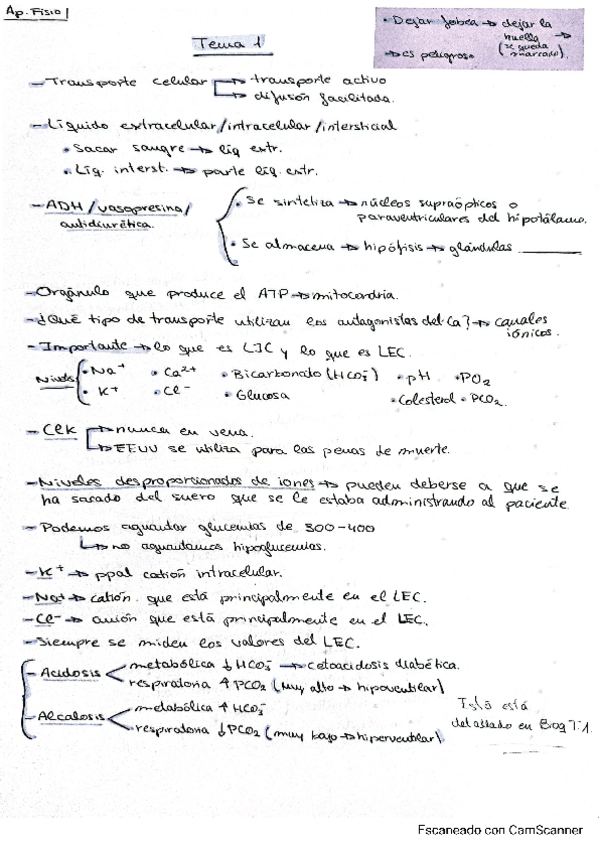 Ap. Fisio 1
• Dejar fobea → dejar la
huella →
(se queda
marcado).
→ es peligroso
Tema 1
- Transporte celular → transporte activo
→ difusión facilitada.
- Líquido extracelular/intracelular/intersticial
• Sacar sangre → líq extr.
• Líq. interst. → parte líq. extr.
- ADH/vasopresina/
antidiurética.
• Se sintetiza → núcleos supraópticos o
paraventriculares del hipotálamo.
• Se almacena → hipófisis → glándulas
- Orgánulo que produce el ATP → mitocondria.
- ¿Qué tipo de transporte utilizan los antagonistas del Ca? → canales
iónicos.
- Importante → lo que es LIC y lo que es LEC.
Niveles • Na+ • Ca2+ • Bicarbonato (HCO3-) • pH • PO2
• K+ • Cl- • Glucosa • Colesterol • PCO2.
- ClK → nunca en vena.
→ EEUU se utiliza para las penas de muerte.
- Niveles desproporcionados de iones → pueden deberse a que se
ha sacado del suero que se le estaba administrando al paciente.
- Podemos aguantar glucemias de 300-400
→ no aguantamos hipoglucemias.
- K+ → ppal catión intracelular.
- Na+ → catión que está principalmente en el LEC.
- Cl- → anión que está principalmente en el LEC.
- Siempre se miden los valores del LEC.
- Acidosis < metabólica ↓ HCO3- → cetoacidosis diabética.
respiratoria ↑ PCO2 (Muy alto → hipoventilar)
- Alcalosis < metabólica ↑ HCO3-
respiratoria ↓ PCO2 (muy bajo → hiperventilar)
Está está
detallado en Bioq T.1.
Escaneado con CamScanner